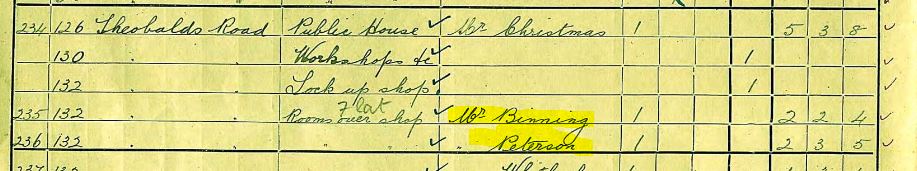 234 126 Theobalds Road Public House ✓ Mr Christmas 1 5 3 8 ✓
130 " " Workshops &c ✓ 1
132 " " Lock up shop ✓ 1
Flat
235 132 " " Rooms over shop ✓ Mr Binning 1 2 2 4 ✓
236 132 " " " " ✓ " Peterson 1 2 3 5 ✓
237